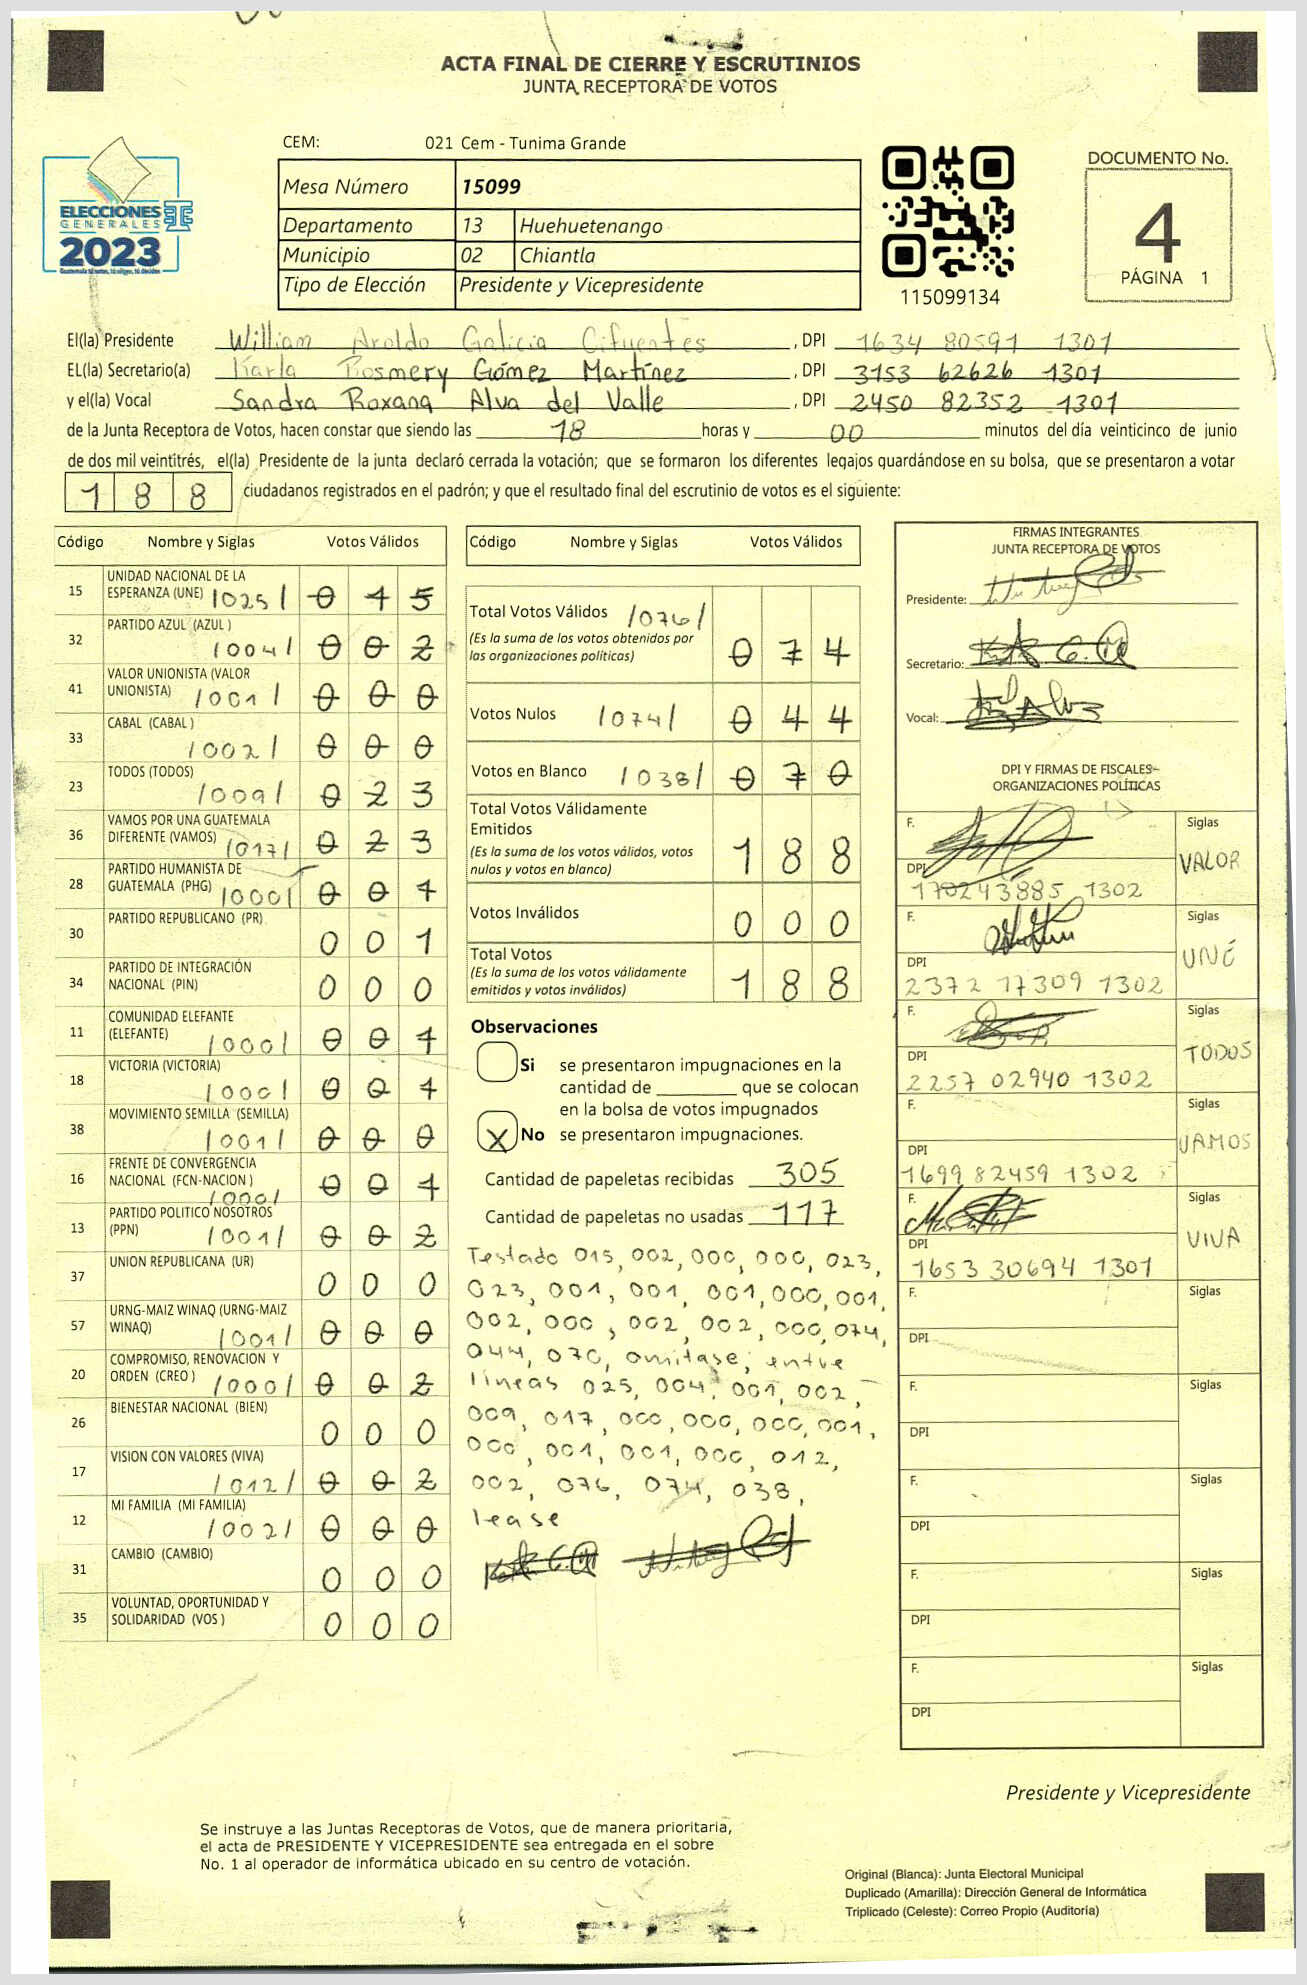 ACTA FINAL DE CIERRE Y ESCRUTINIOS
JUNTA RECEPTORA DE VOTOS
CEM: 021 Cem - Tunima Grande
ELECCIONES
GENERALES
2023
Guatemala tú votas, tú eliges, tú decides
Mesa Número 15099
Departamento 13 Huehuetenango
Municipio 02 Chiantla
Tipo de Elección Presidente y Vicepresidente
115099134
DOCUMENTO No.
4
PÁGINA 1
El(la) Presidente William Aroldo Galicia Cifuentes, DPI 1634 80591 1301
EL(la) Secretario(a) Karla Rosmery Gómez Martínez, DPI 3153 62626 1301
y el(la) Vocal Sandra Roxana Alva del Valle, DPI 2450 82352 1301
de la Junta Receptora de Votos, hacen constar que siendo las 18 horas y 00 minutos del día veinticinco de junio
de dos mil veintitrés, el(la) Presidente de la junta declaró cerrada la votación; que se formaron los diferentes legajos guardándose en su bolsa, que se presentaron a votar
188 ciudadanos registrados en el padrón; y que el resultado final del escrutinio de votos es el siguiente:
Código Nombre y Siglas Votos Válidos
15 UNIDAD NACIONAL DE LA
ESPERANZA (UNE) /025/ 0 1 5
32 PARTIDO AZUL (AZUL )
/004/ 0 0 2
41 VALOR UNIONISTA (VALOR
UNIONISTA) /001/ 0 0 0
33 CABAL (CABAL )
/002/ 0 0 0
23 TODOS (TODOS)
/009/ 0 2 3
36 VAMOS POR UNA GUATEMALA
DIFERENTE (VAMOS) /017/ 0 2 3
28 PARTIDO HUMANISTA DE
GUATEMALA (PHG) /000/ 0 0 1
30 PARTIDO REPUBLICANO (PR)
0 0 1
34 PARTIDO DE INTEGRACIÓN
NACIONAL (PIN) 0 0 0
11 COMUNIDAD ELEFANTE
(ELEFANTE) /000/ 0 0 1
18 VICTORIA (VICTORIA)
/000/ 0 0 1
38 MOVIMIENTO SEMILLA (SEMILLA)
/001/ 0 0 0
16 FRENTE DE CONVERGENCIA
NACIONAL (FCN-NACION )
/000/ 0 0 1
13 PARTIDO POLITICO NOSOTROS
(PPN) /001/ 0 0 2
37 UNION REPUBLICANA (UR)
0 0 0
57 URNG-MAIZ WINAQ (URNG-MAIZ
WINAQ) /001/ 0 0 0
20 COMPROMISO, RENOVACION Y
ORDEN (CREO ) /000/ 0 0 2
26 BIENESTAR NACIONAL (BIEN)
0 0 0
17 VISION CON VALORES (VIVA)
/012/ 0 0 2
12 MI FAMILIA (MI FAMILIA)
/002/ 0 0 0
31 CAMBIO (CAMBIO)
0 0 0
35 VOLUNTAD, OPORTUNIDAD Y
SOLIDARIDAD (VOS ) 0 0 0
Código Nombre y Siglas Votos Válidos
Total Votos Válidos /076/ 0 7 4
(Es la suma de los votos obtenidos por
las organizaciones políticas)
Votos Nulos /074/ 0 4 4
Votos en Blanco /038/ 0 7 0
Total Votos Válidamente
Emitidos
(Es la suma de los votos válidos, votos
nulos y votos en blanco) 1 8 8
Votos Inválidos 0 0 0
Total Votos
(Es la suma de los votos válidamente
emitidos y votos inválidos) 1 8 8
Observaciones
Si se presentaron impugnaciones en la
cantidad de ________ que se colocan
en la bolsa de votos impugnados
X No se presentaron impugnaciones.
Cantidad de papeletas recibidas 305
Cantidad de papeletas no usadas 117
Testado 015, 002, 000, 000, 023,
023, 001, 001, 001, 000, 001,
002, 000, 002, 002, 000, 074,
044, 070, omitase, entre
líneas 025, 004, 001, 002
009, 017, 000, 000, 000, 001,
000, 001, 001, 000, 012,
002, 076, 074, 038,
lease
FIRMAS INTEGRANTES
JUNTA RECEPTORA DE VOTOS
Presidente:
Secretario:
Vocal:
DPI Y FIRMAS DE FISCALES
ORGANIZACIONES POLÍTICAS
F. Siglas
VALOR
DPI
170243885 1302
F. Siglas
UNE
DPI
2372 17309 1302
F. Siglas
TODOS
DPI
2257 02940 1302
F. Siglas
VAMOS
DPI
1699 82459 1302
F. Siglas
VIVA
DPI
1653 30694 1301
F. Siglas
DPI
F. Siglas
DPI
F. Siglas
DPI
F. Siglas
DPI
F. Siglas
DPI
Presidente y Vicepresidente
Se instruye a las Juntas Receptoras de Votos, que de manera prioritaria,
el acta de PRESIDENTE Y VICEPRESIDENTE sea entregada en el sobre
No. 1 al operador de informática ubicado en su centro de votación.
Original (Blanca): Junta Electoral Municipal
Duplicado (Amarilla): Dirección General de Informática
Triplicado (Celeste): Correo Propio (Auditoría)